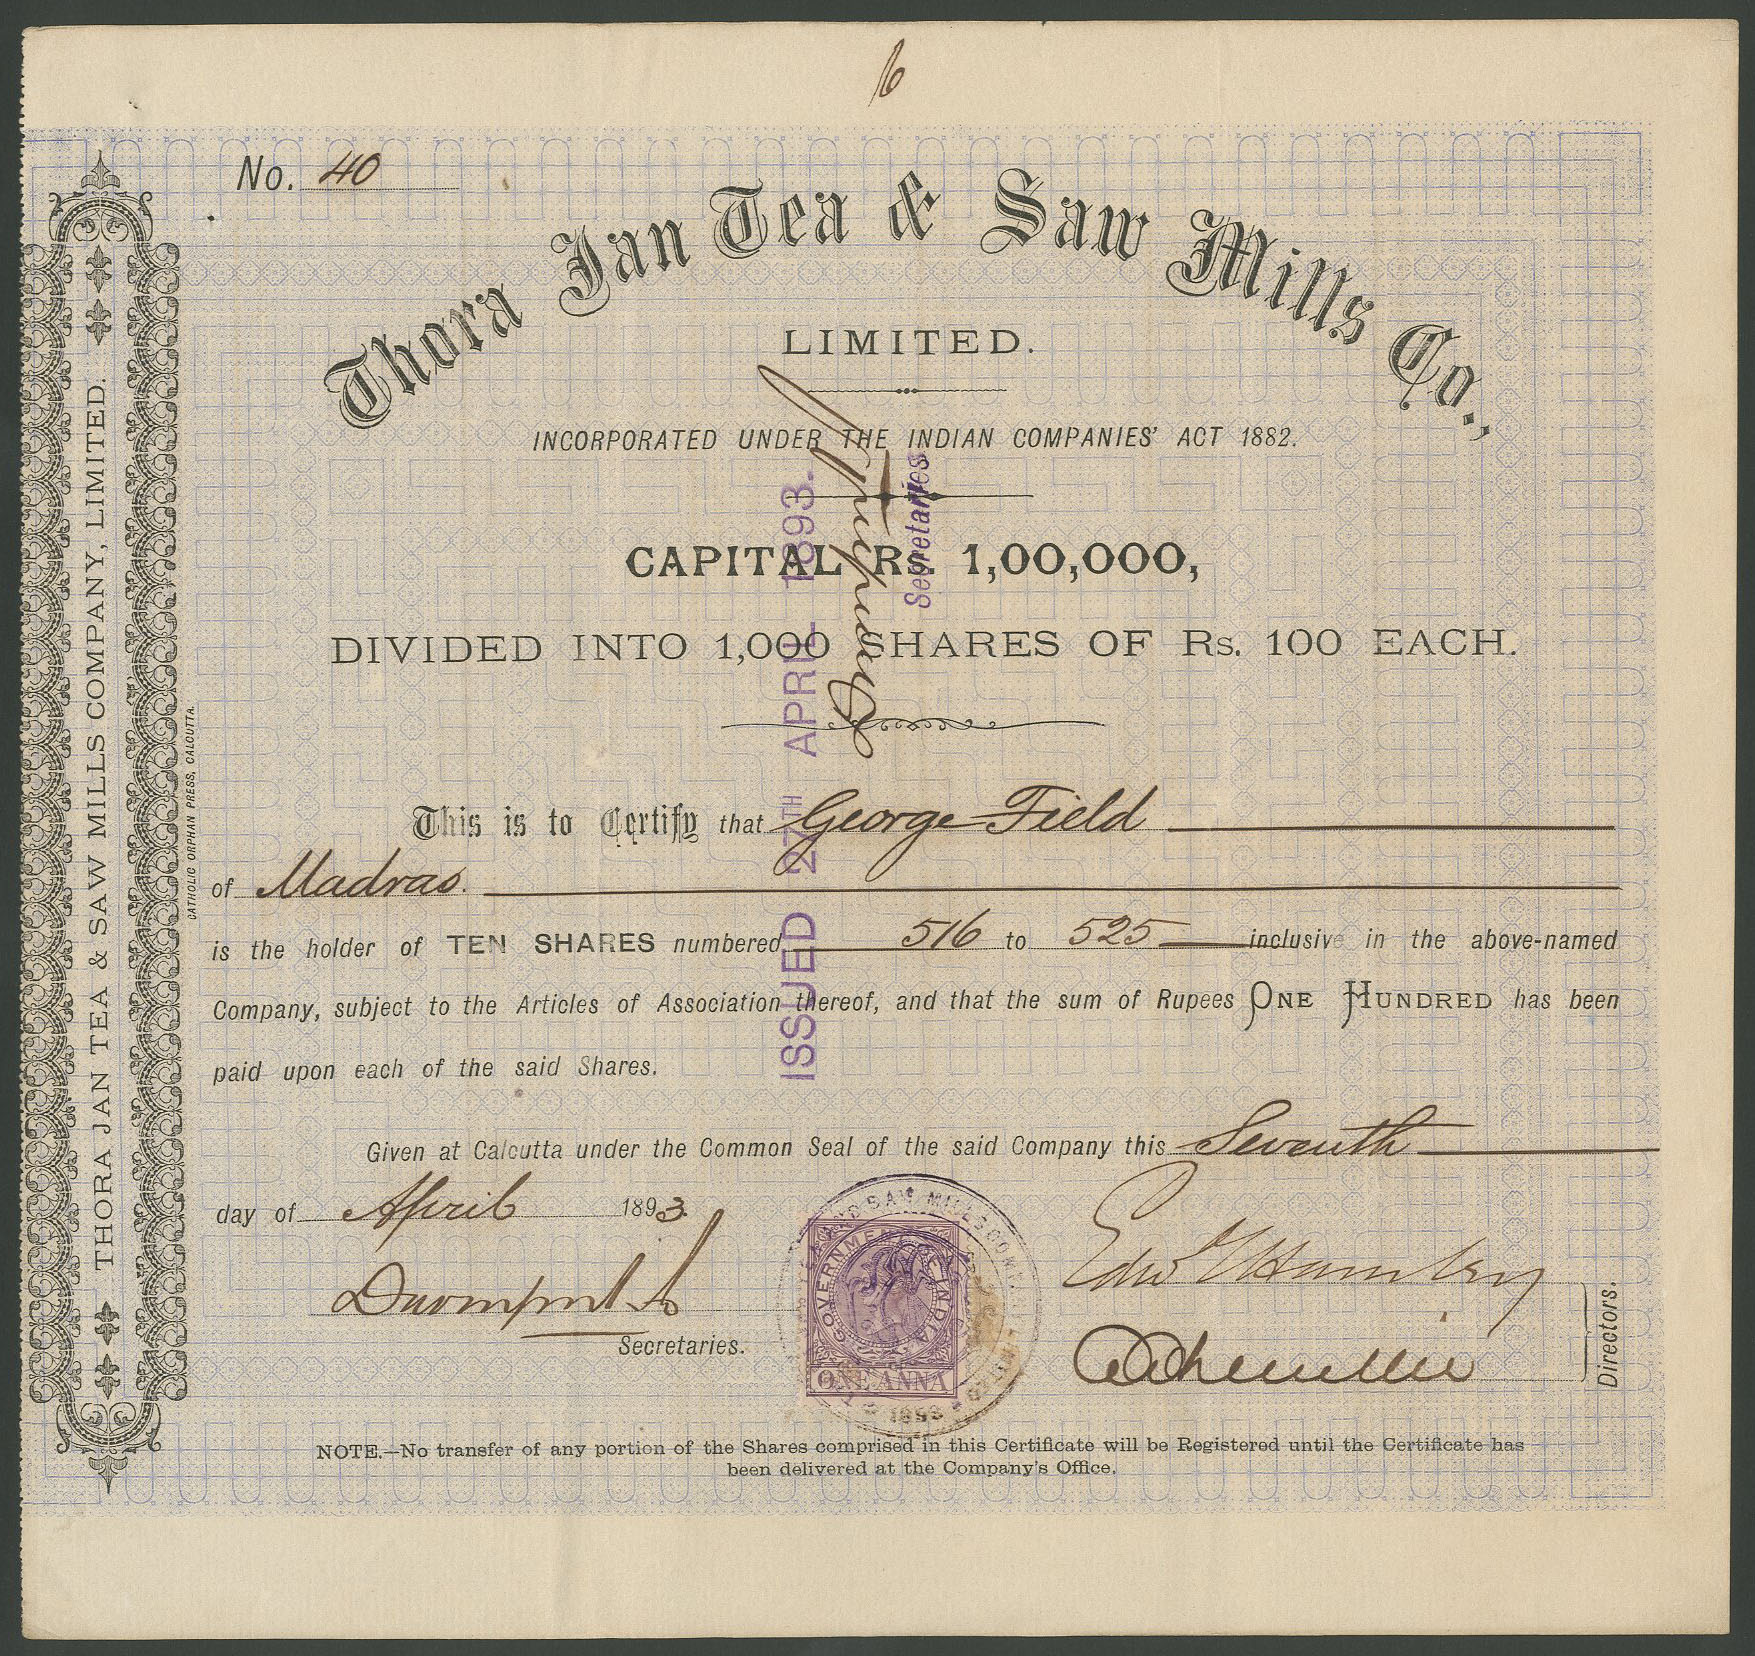 6
No. 40
Thora Jan Tea & Saw Mills Co.,
LIMITED.
INCORPORATED UNDER THE INDIAN COMPANIES' ACT 1882.
CAPITAL Rs. 1,00,000,
DIVIDED INTO 1,000 SHARES OF Rs. 100 EACH.
ISSUED 27TH APRIL 1893.
Secretaries
This is to Certify that George Field
of Madras.
is the holder of TEN SHARES numbered 516 to 525 inclusive in the above-named
Company, subject to the Articles of Association thereof, and that the sum of Rupees ONE HUNDRED has been
paid upon each of the said Shares.
Given at Calcutta under the Common Seal of the said Company this Seventh
day of April 1893.
Secretaries.
Directors.
GOVERNMENT OF INDIA
ONE ANNA
1893
NOTE.—No transfer of any portion of the Shares comprised in this Certificate will be Registered until the Certificate has
been delivered at the Company's Office.
THORA JAN TEA & SAW MILLS COMPANY, LIMITED.
CATHOLIC ORPHAN PRESS, CALCUTTA.